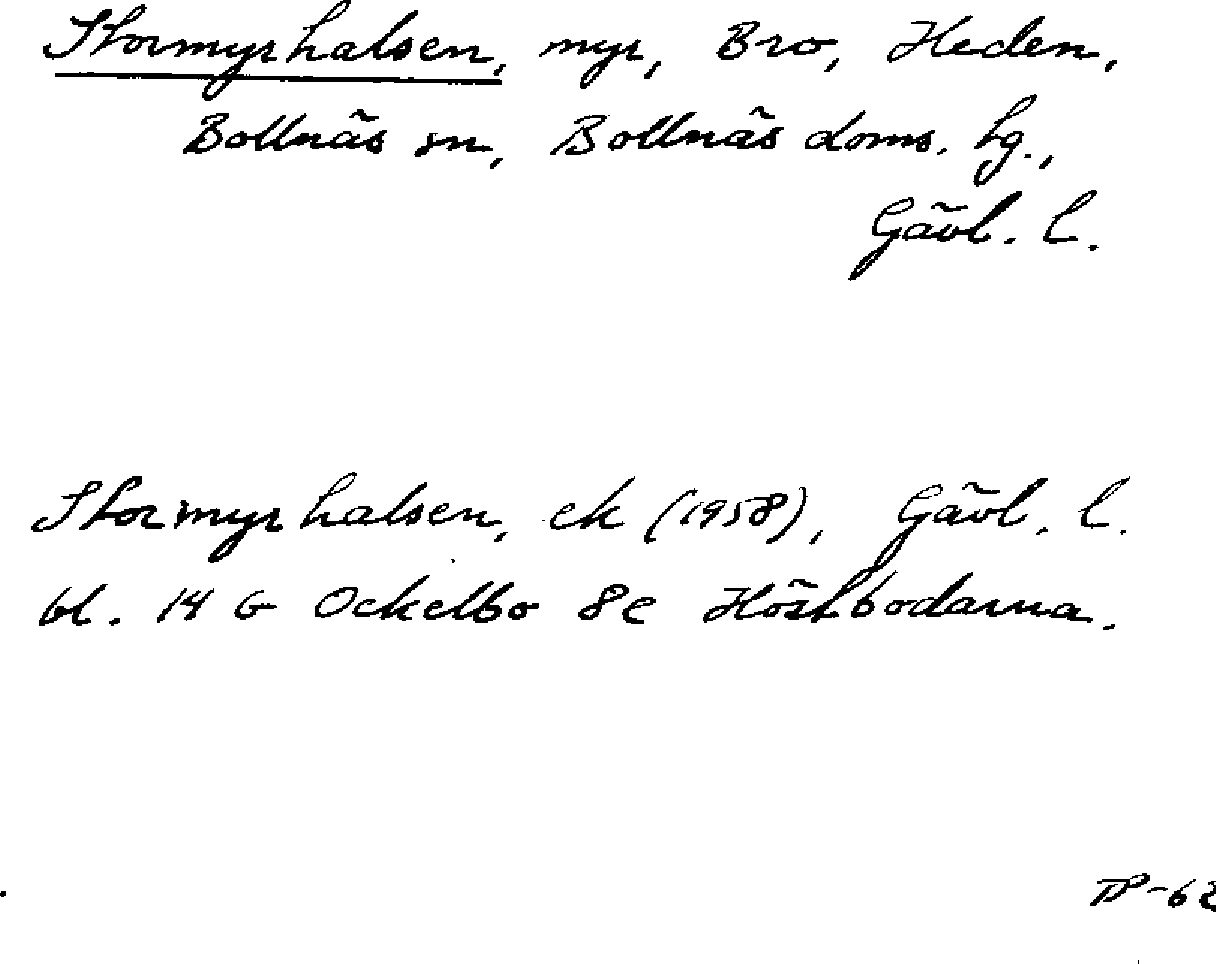 Stormyrhalsen, myr, Bro, Heden,
Bollnäs sn, Bollnäs doms. hg.,
Gävl. l.
Stormyrhalsen, ek (1958), Gävl. l.
bl. 14 G Ockelbo 8e Höstbodarna.